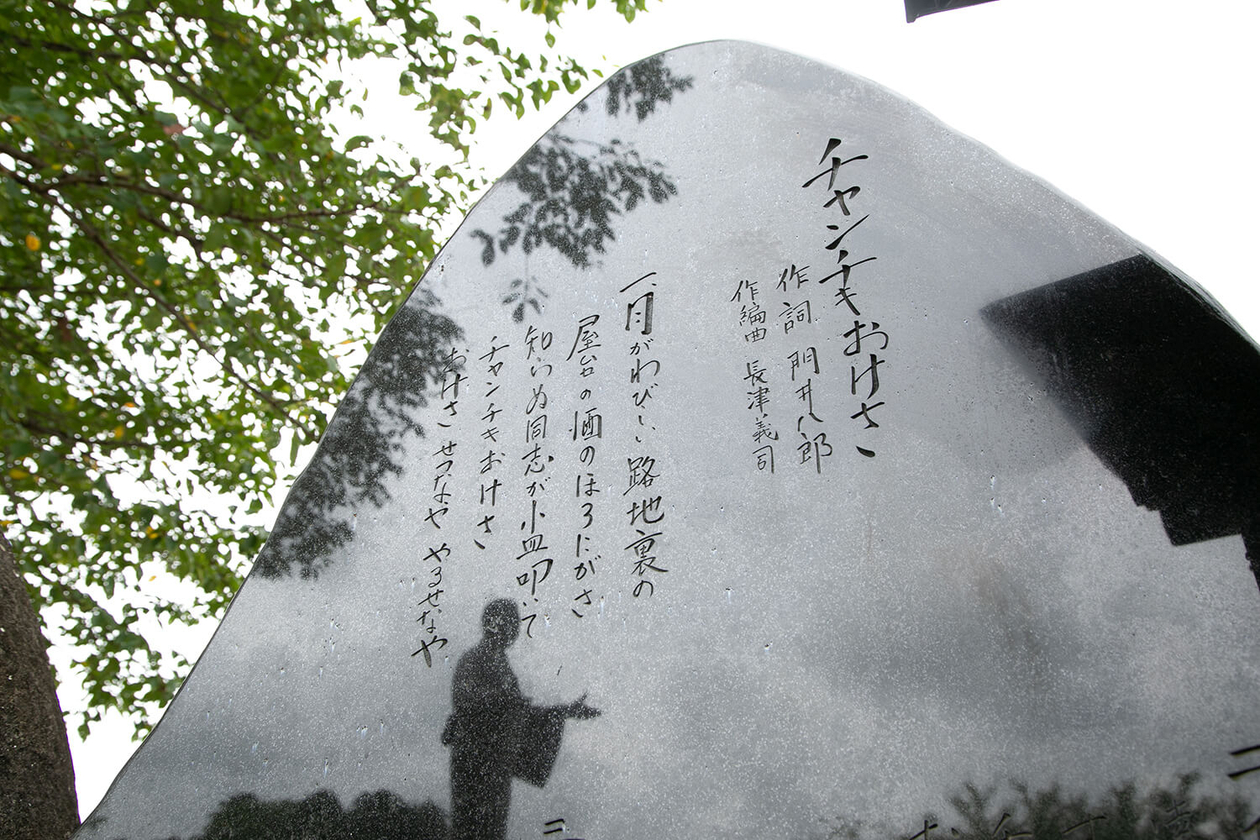 チャンチキおけさ
作詞 門井八郎
作編曲 長津義司
一、月がわびしい 路地裏の
屋台の酒のほろにがさ
知らぬ同志が小皿叩いて
チャンチキおけさ
おけさ せつなや やるせなや
二